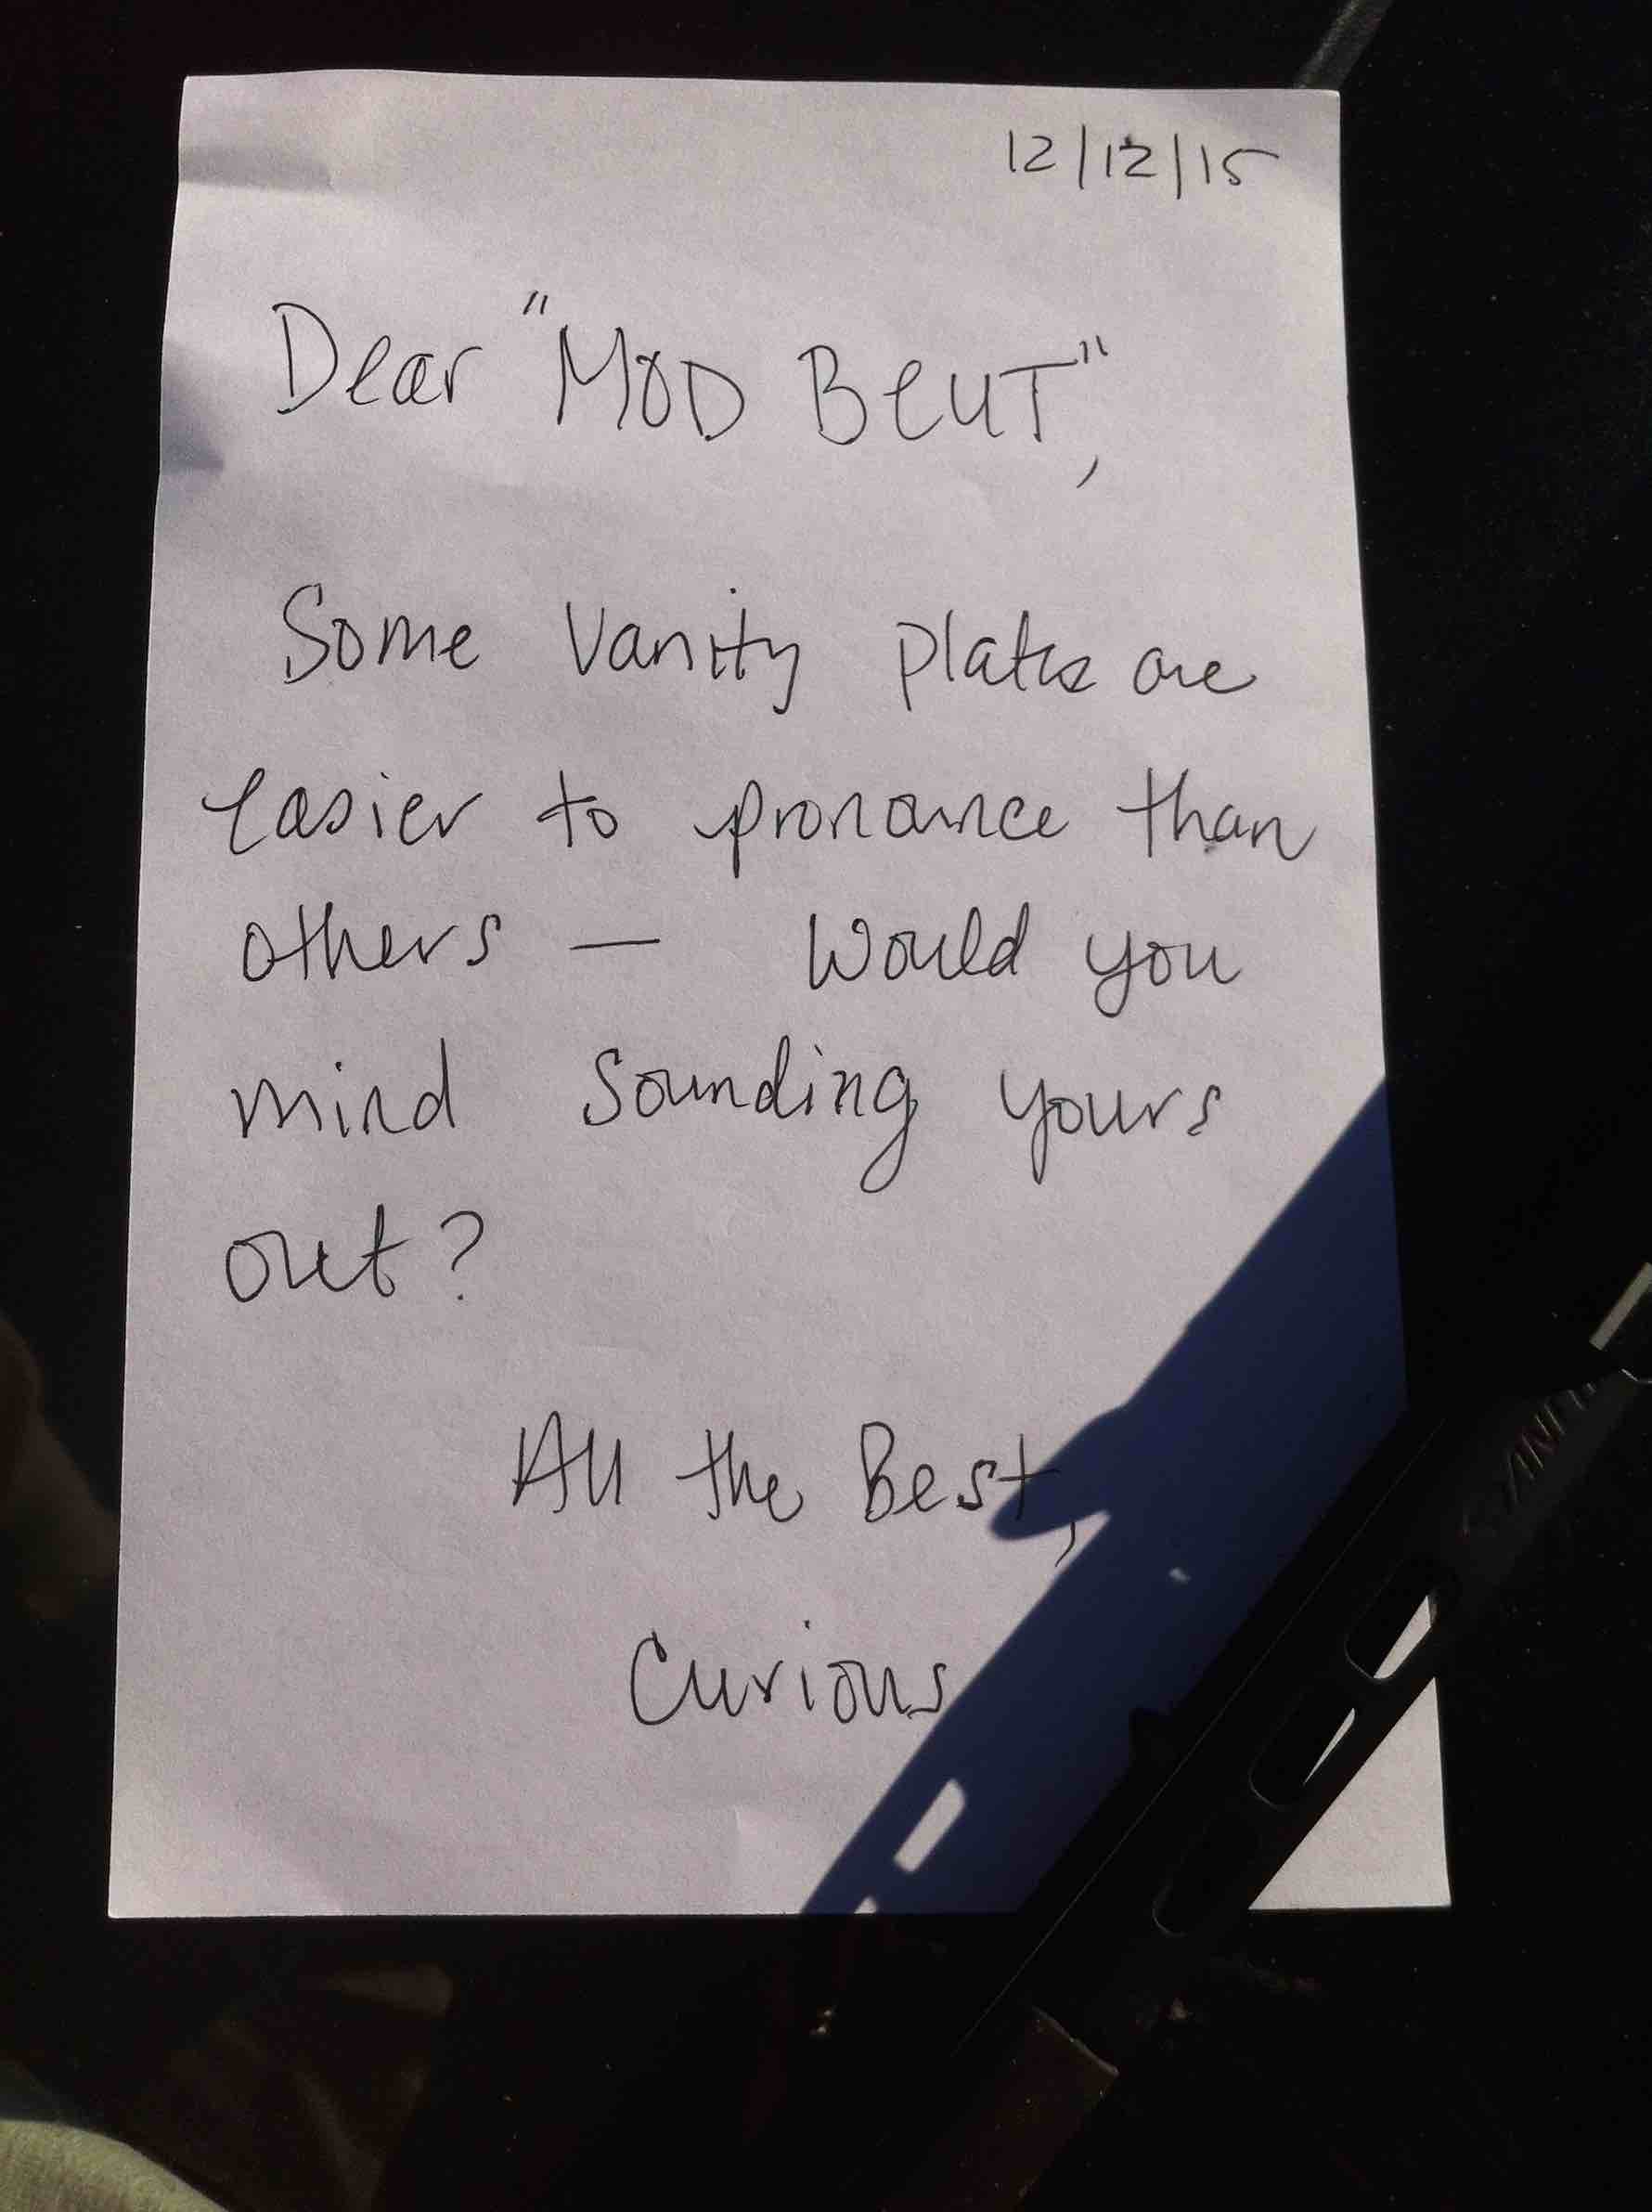 12/12/15
Dear "MOD BEUT",
Some Vanity plates are
easier to pronounce than
others — Would you
mind sounding yours
out?
All the Best,
Curious